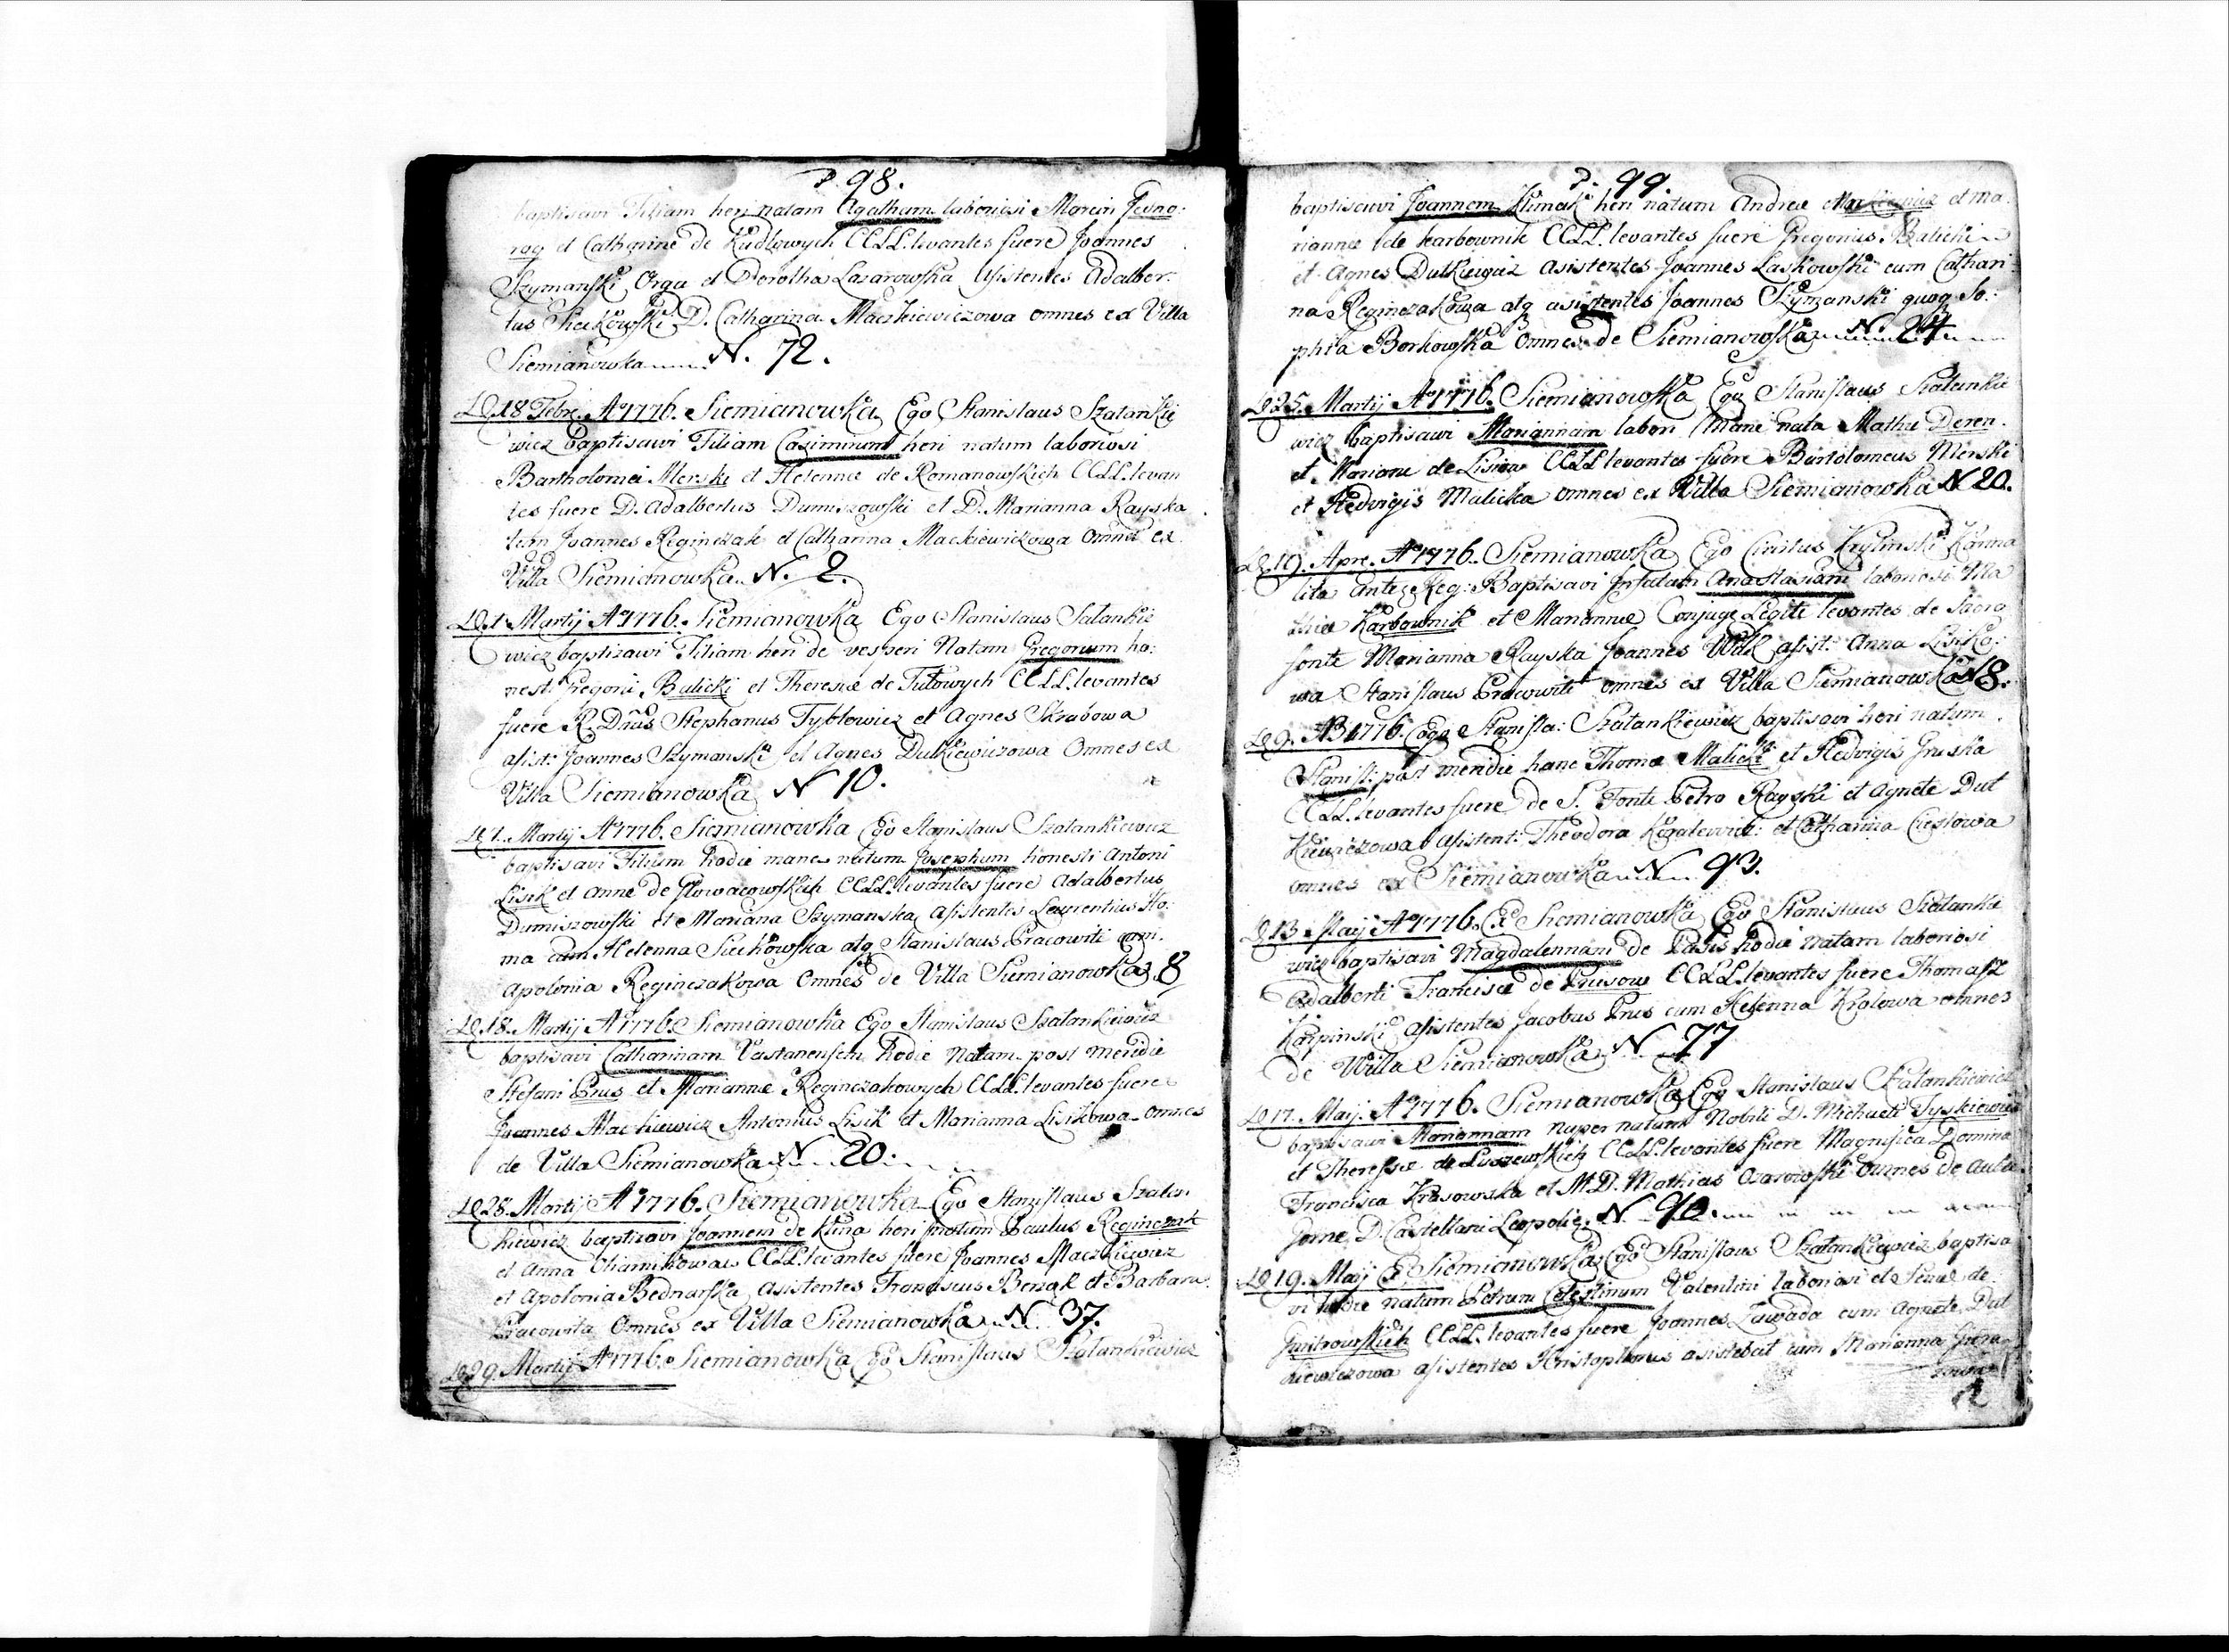 P. 98.
baptisavi Filiam heri natam Agatham laboriosi Marcin
rog et Catharine de Kudlowych CCLL. levantes fuere Joannes
Szymanski Orga et Dorotha Lazarowska Asistentes Adalber:
tus D. Catharina Maczkiewiczowa omnes ex Villa
Siemianowka N. 72.
D. 18 Febr. Ao 1776. Siemianowka Ego Stanislaus Szatankie
wicz baptisavi Filiam Casimirum heri natum laboriosi
Bartholomei Merski et Helennæ de Romanowskich CCLL. levan
tes fuere D. Adalbertus Dumiszowski et D. Marianna Rayska
Joannes Reginczak et Catharina Mackiewiczowa omnes ex
Villa Siemianowka N. 2.
D. 1. Martij Ao 1776. Siemianowka Ego Stanislaus Satankie
wicz baptizawi Filiam heri de vesperi Natam Gregorium ho:
nesti Gregorii Balicki et Theresiæ de Tutowych CCLL. levantes
fuere R. Dnus Stephanus Tyblowicz et Agnes Skrabowa
asist: Joannes Szymanski et Agnes Dutkiewiczowa Omnes ex
Villa Siemianowka N 10.
D. 7. Martij Ao 1776. Siemianowka Ego Stanislaus Szatankiewicz
baptisavi Filium hodie mane natum Josephum honesti Antoni
Lisik et Anne de Glowacowskich CCLL. levantes fuere Adalbertus
Dumiszowski et Mariana Szymanska Asistentes Laurentius Sto:
ma cum Helenna Siechowska atq Stanislaus Pracowiti
Apolonia Reginczakowa Omnes de Villa Siemianowka 8
D. 18. Martij Ao 1776. Siemianowka Ego Stanislaus Szatankiewicz
baptisavi Catharinam hodie Natam post meridie
Stefani Prus et Mariannæ Reginczakowych CCLL. levantes fuere
Joannes Mackiewicz Antonius Lisik et Marianna Lisikowa omnes
de Villa Siemianowka N. 20.
D. 28. Martij Ao 1776. Siemianowka Ego Stanislaus Szatan
kiewicz baptizavi Joannem de heri Paulus Reginczak
et Anna CCLL. levantes fuere Joannes Maczkiewicz
et Apolonia Bednarska Asistentes Franciscus et Barbara
Pracowita Omnes ex Villa Siemianowka N. 37.
D. 29. Martij Ao 1776. Siemianowka Ego Stanislaus Szatankiewicz
P. 99.
baptisavi Joannem Klimak heri natum Andreæ et Ma
riannæ de karbownik CCLL. levantes fuere Gregorius Balicki
et Agnes Dutkiewicz asistentes Joannes Laskowski cum Cathari
na Reginczakowa atq asistentes Joannes Szymanski quoq So:
phia Borkowska Omnes de Siemianowska N. 24.
D. 25. Martij Ao 1776. Siemianowska Ego Stanislaus Szatankie
wicz baptisawi Mariannam labori mane nata Mathie Deren.
et Mariane de CCLL levantes fuere Bartolomeus Merski
et Hedvigis Malicka omnes ex Villa Siemianowka N 20.
D. 19. Apre. Ao 1776. Siemianowka Ego Krylinski Karma
lita Reg: Baptisavi Anastasiam laboriosi Ma
thiæ Karbownik et Mariannæ Conjuge Legite levantes de Sacro
fonte Marianna Rayska Joannes Wilk asist: Anna Lisiko:
wa Stanislaus Pracowiti omnes ex Villa Siemianowka 18.
D. 9. 1776. Ego Stanisla: Szatankiewicz baptisavi heri natum
Stanisl: post meridie hanc Thomæ Malicki et Hedvigis Gruska
CCLL. levantes fuere de S. Fonte Petro Rayski et Agnete Dut
kiewiczowa Asistent: Theodora et Catharina Cieslowa
omnes ex Siemianowka N. 93.
D. 13 Maij Ao 1776. Ex Siemianowka Ego Stanislaus Szatankie
wicz baptisavi Magdalennam de hodie natam laboriosi
Adalberti Francisca de Prusow CCLL. levantes fuere Thomasz
Karpinski Asistentes Jacobus Prus cum Helenna Krolowa omnes
de Willa Siemianowka N. 77
D. 17. Maij. Ao 1776. Siemianowka Ego Stanislaus Szatankiewicz
baptisavi Mariannam nuper natum Nobili D. Michaeli Tyskiewicz
et Theresæ de CCLL. levantes fuere Magnifica Domina
Francisca Krasowska et M. D. Mathias Omnes de Aula
D. Castellani Leopolie. N. 90.
D. 19. Maij Ex Siemianowka Ego Stanislaus Szatankiewicz baptisa
vi hodie natum Petrum Celestinum Valentini laboriosi et de
CCLL. levantes fuere Joannes Zawada cum Agnete Dut
kiewiczowa asistentes Kristophorus asistebat cum Marianna